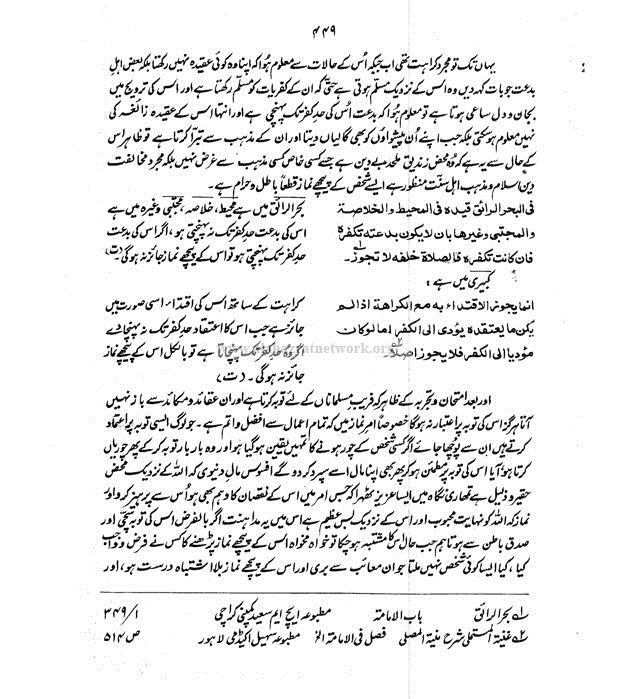 ۴۴۹
یہاں تک تو مجرد کراہت تھی اب جبکہ اُس کے حالات سے معلوم ہُوا کہ اپنا وہ کوئی عقیدہ نہیں رکھتا بلکہ بعض اہلِ
بدعت جو بات کہہ دیں وہ اس کے نزدیک مسلّم ہوتی ہے حتّٰی کہ ان کے کفریات کو مسلّم رکھتا ہے اور اس کی ترویج میں
بجان و دل ساعی ہوتا ہے تو معلوم ہُوا کہ بدعت اُس کی حدِ کفر تک پہنچی ہے اور انتہا اس کے عقیدہ زائغہ کی
نہیں معلوم ہو سکتی بلکہ جب اپنے اُن پیشواؤں کو بھی گالیاں دیتا اور ان کے مذہب سے تبرّا کرتا ہے تو ظاہر اس
کے حال سے یہ ہے کہ وُہ محض زندیق ملحد بے دین ہے جسے کسی خاص کسی مذہب سے غرض نہیں بلکہ مجرد مخالفت
دین اسلام و مذہب اہل سنّت منظور ہے ایسے شخص کے پیچھے نماز قطعاً باطل و حرام ہے۔
فی البحر الرائق قیدہ فی المحیط والخلاصة
والمجتبی وغیرھا بان لا یکون بدعته تکفرہ
فان کانت تکفرہ فالصلاة خلفه لا تجوز۱؎۔
بحر الرائق میں ہے محیط، خلاصہ، مجتبٰی وغیرہ میں ہے
اس کی بدعت حدِ کفر تک نہ پہنچتی ہو، اگر اس کی بدعت
حدِ کفر تک پہنچتی ہو تو اس کے پیچھے نماز جائز نہ ہوگی (ت)
کبیری میں ہے :
انما یجوز الاقتداء به مع الکراھة اذا لم
یکن ما یعتقدہ یؤدی الی الکفر اما لو کان
مؤدیا الی الکفر فلا یجوز اصلا۲؎۔
کراہت کے ساتھ اس کی اقتداء اسی صورت میں
جائز ہے جب اس کا اعتقاد حدِ کفر تک نہ پہنچائے
اگر وُہ حدِ کفر تک پہنچاتا ہے تو بالکل اس کے پیچھے نماز
جائز نہ ہوگی۔ (ت)
اور بعد امتحان و تجربہ کے ظاہر کہ فریب مسلماناں کے لئے توبہ کرتا ہے اور ان عقائد و مکائد سے باز نہیں
آتا ہرگز اس کی توبہ پر اعتبار نہ ہوگا خصوصاً امر نماز میں کہ تمام اعمال سے افضل و اتم ہے۔ جو لوگ ایسی توبہ پر اعتماد
کرتے ہیں ان سے پُوچھا جائے اگر کسی شخص کے چور ہونے کا تمہیں یقین ہوگیا ہو اور وہ بار بار توبہ کر کے پھر چوریاں
کرتا ہو آیا اس کی توبہ پر مطمئن ہو کر پھر بھی اپنا مال اسے سپرد کر دو گے افسوس مالِ دنیوی کہ اللہ کے نزدیک محض
حقیر و ذلیل ہے تمھاری نگاہ میں ایسا عزیز ٹھہرا کہ جس امر میں اس کے نقصان کا وہم بھی ہو اُس سے پرہیز کرو اور
نماز کہ اللہ کو نہایت محبوب اور اس کے نزدیک بس عظیم ہے اس میں یہ مداہنت اگر بالفرض اس کی توبہ سچّی اور
صدقِ باطن سے ہو تاہم جب حال اس کا مشتبہ ہو چکا تو خواہ مخواہ اس کے پیچھے نماز پڑھنے کا کس نے فرض و واجب
کیا، کیا ایسا کوئی شخص نہیں ملتا جو ان معائب سے بری اور اس کے پیچھے نماز بلا اشتباہ درست ہو، اور
۱؎ بحر الرائق باب الامامة مطبوعہ ایچ ایم سعید کمپنی کراچی ۱/۳۴۹
۲؎ غنیۃ المستملی شرح منیۃ المصلی فصل فی الامامة الخ مطبوعہ سہیل اکیڈمی لاہور ص ۵۱۴